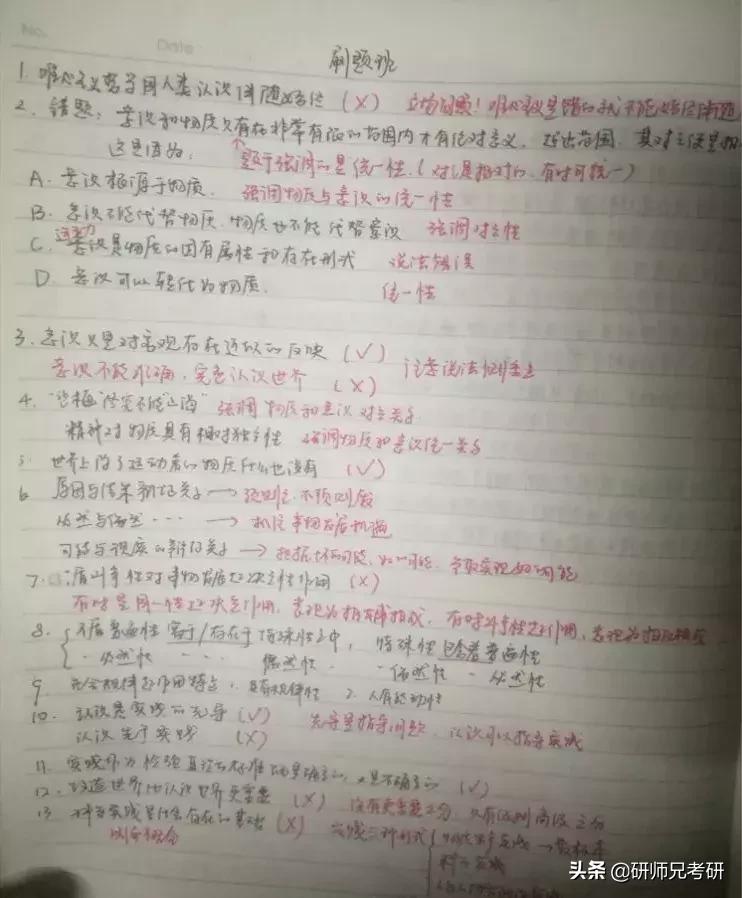 No.
Date
刷题班
1. 唯心主义哲学同人类认识伴随始终 (X) 立场问题！唯心主义是错的就不能始终伴随
2. 错题：意识和物质只有在非常有限的范围内才有绝对意义，超出范围，其对立便是相
这是因为： 题干强调的是统一性。(对立是相对的，有时可统一)
A. 意识根源于物质. 强调物质与意识的统一性
B. 意识不能代替物质，物质也不能代替意识 强调对立性
C. 意识是物质的固有属性和存在形式 说法错误
运动
D. 意识可以转化为物质. 统一性
3. 意识只是对客观存在近似的反映 (√) 注意说法侧重点
意识不能准确，完全认识世界 (X)
4. 强调物质和意识对立关系
精神对物质具有相对独立性 强调物质和意识统一关系
5. 世界上除了运动着的物质什么也没有 (√)
6 原因与结果辩证关系 → 预则立，不预则废
必然与偶然 ··· → 抓住事物发展机遇
可能与现实的辩证关系 → 把握坏的可能，争取实现好的可能
7. 矛盾斗争性对事物发展起决定性作用 (X)
有时是同一性起决定作用，表现为相辅相成，有时斗争性起作用，表现为相反相成
8. 矛盾普遍性寓于/存在于特殊性之中，特殊性包含着普遍性
·必然性 ··· 偶然性. ·偶然性 - 必然性
9 社会规律起作用特点：1. 具有规律性 2. 人有能动性
10. 认识是实践的先导 (√) 先导是指导问题，认识可以指导实践
认识先于实践 (X)
11. 实践作为检验真理的标准既是确定的，又是不确定的 (√)
12. 改造世界比认识世界更重要 (X) 没有更重要之分，只有低级高级之分
13. 科学实践是社会存在的基础 (X) 实践三种形式
物质生产实践 →
科学实践
头条 @研师兄考研